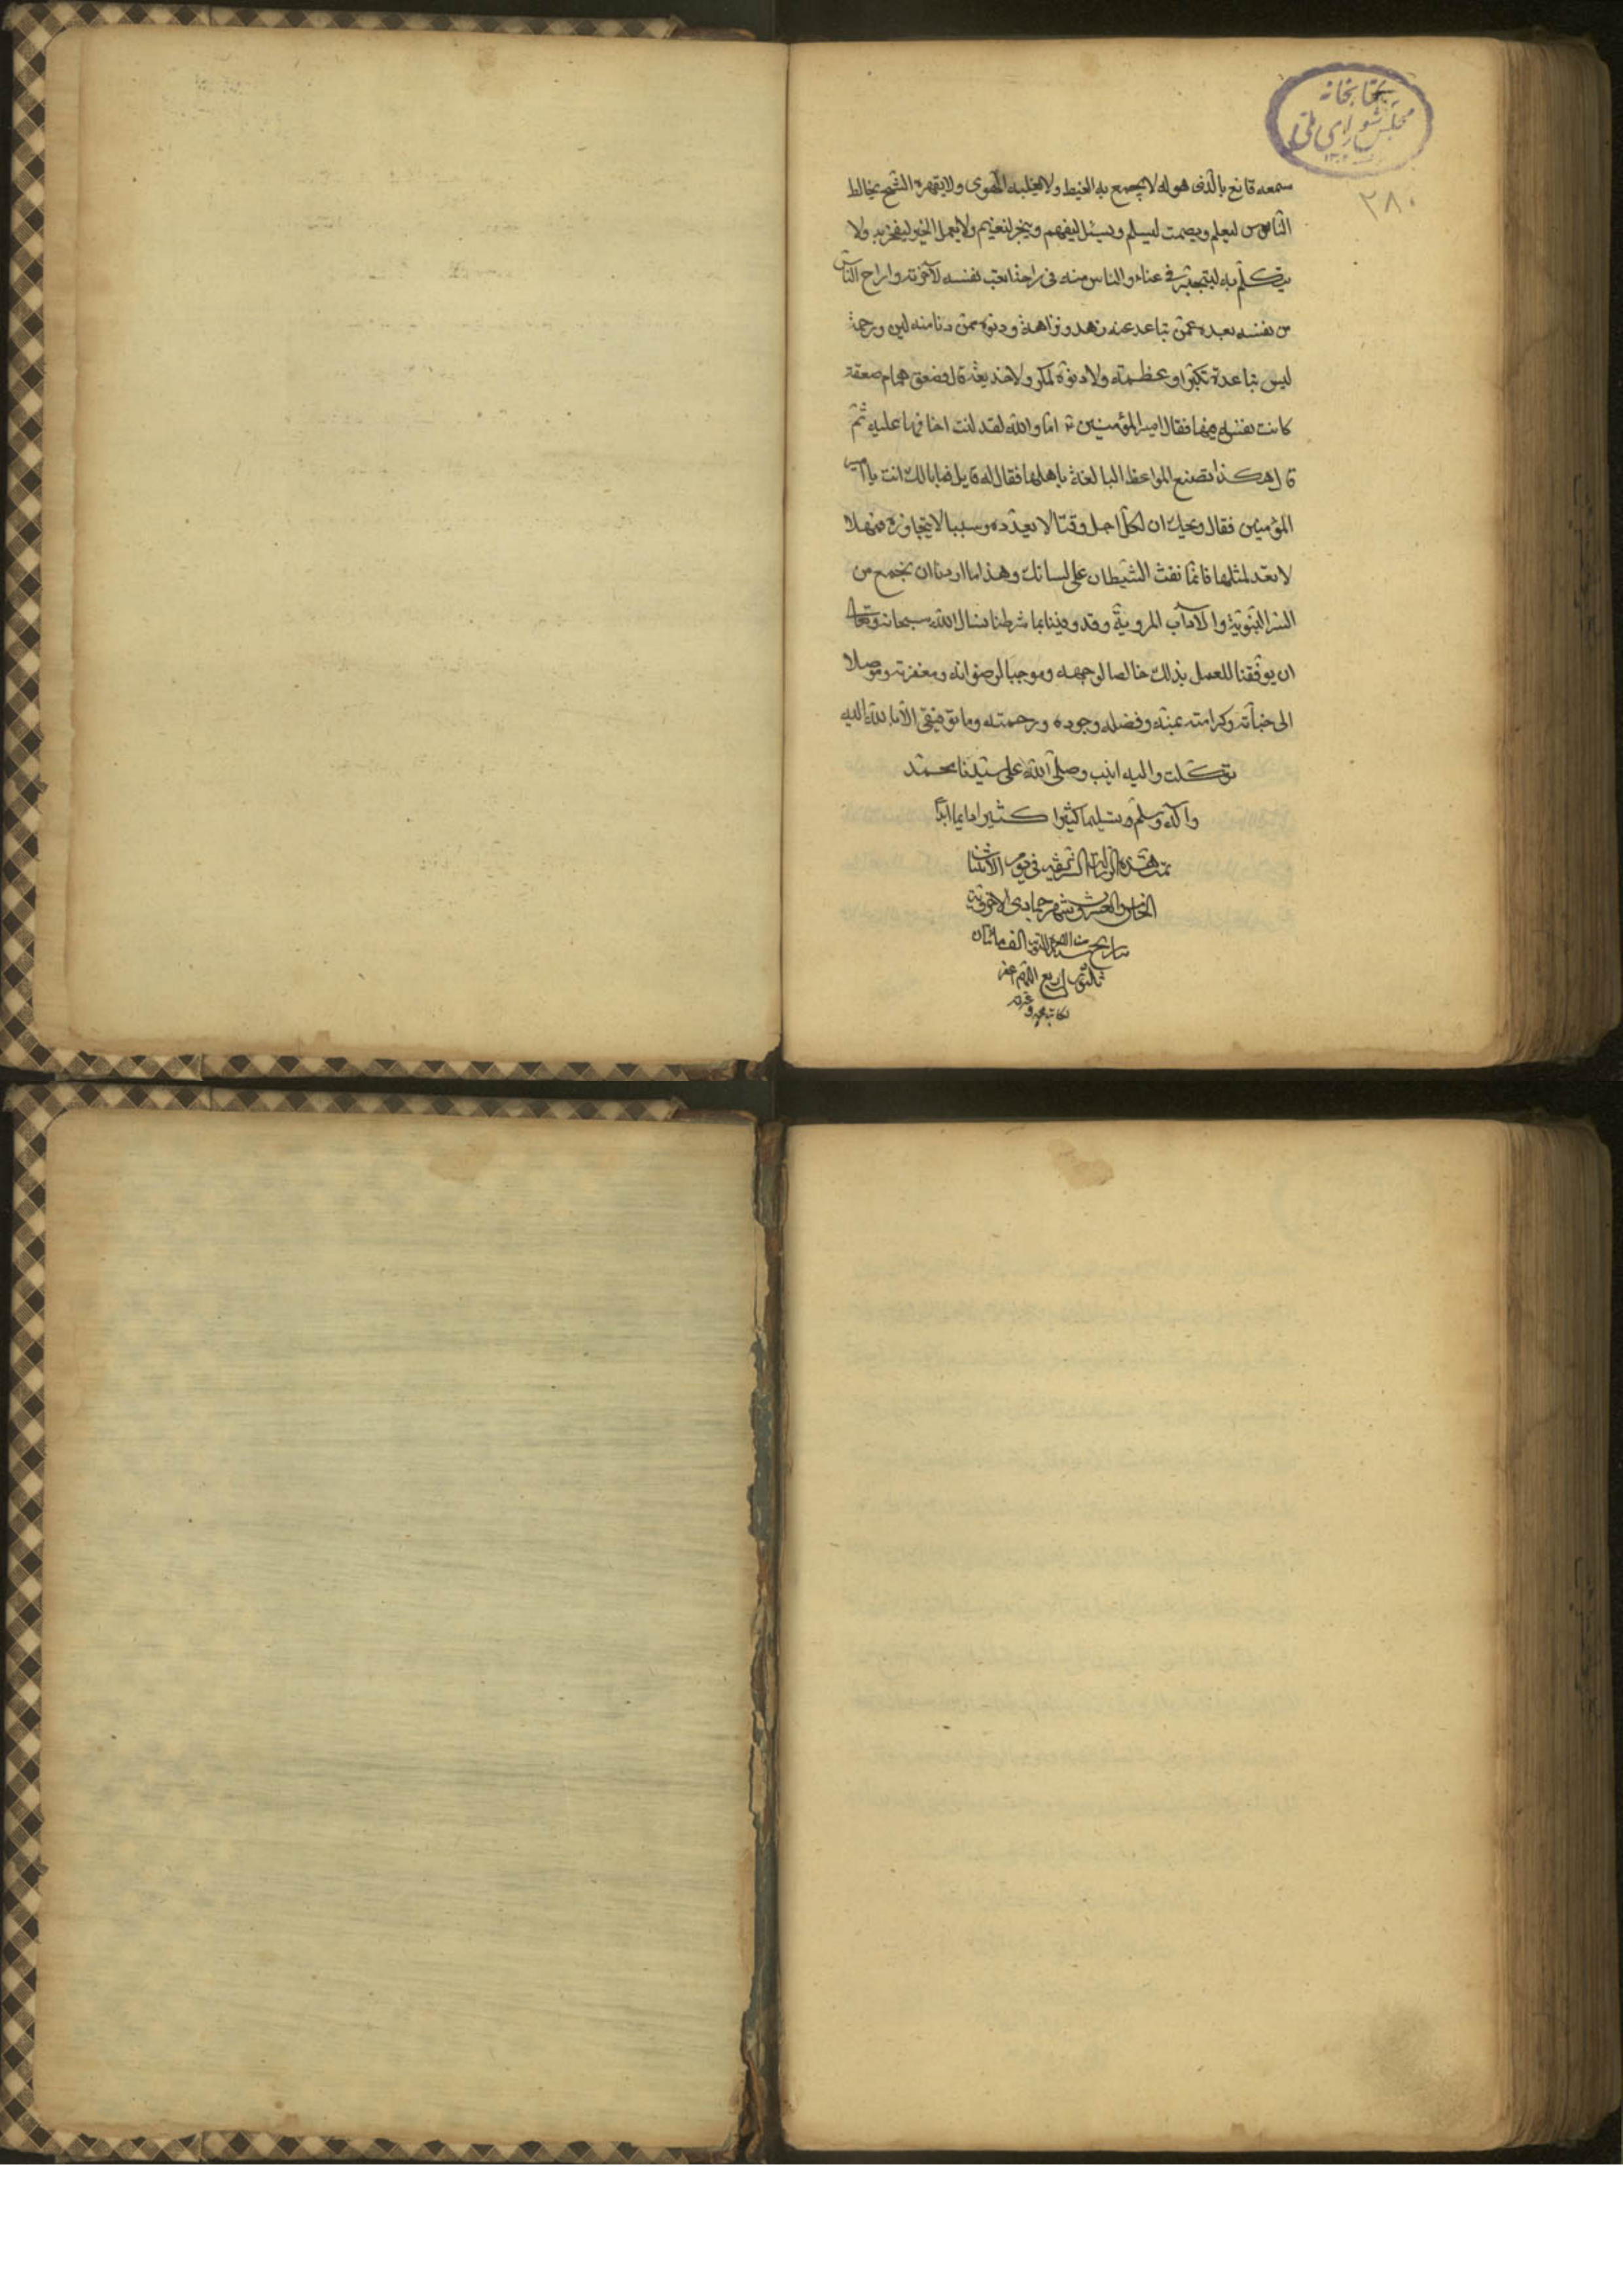 کتابخانه
مجلس شورای ملی
۲۸۰
سمعه قانع بالذی هو له لا یجمع به الغیظ ولا یغلبه الهوی ولا یقهره الشح یخالط
الناس لیعلم ویصمت لیسلم ویسئل لیفهم ولا یعمل الخیر لیفخر به ولا
یتکلم به فی عناء والناس منه فی راحة اتعب نفسه لآخرته واراح الناس
من نفسه بعده عمن تباعد عنه زهد ونزاهة ودنوه ممن دنا منه لین ورحمة
لیس تباعده تکبرا وعظمته ولا دنوه لمکر ولا خدیعة قال فصعق همام صعقة
کانت نفسه فیها فقال امیر المؤمنین اما والله لقد کنت اخافها علیه ثم
قال هکذا تصنع المواعظ البالغة باهلها فقال له قایل فما بالک انت یا امیر
المؤمنین فقال ویحک ان لکل اجل وقتا لا یعدوه وسببا لا یتجاوزه فمهلا
لا تعد لمثلها فانما نفث الشیطان علی لسانک وهذا ما اردنا ان نجمع من
السنن النبویة والآداب المرویة وقد وفینا بما شرطنا نسال الله سبحانه وتعالی
ان یوفقنا للعمل بذلک خالصا لوجهه وموجبا لرضوانه ومغفرته وموصلا
الی جناته وکرامته بمنه وفضله وجوده ورحمته وما توفیقی الا بالله علیه
توکلت والیه انیب وصلی الله علی سیدنا محمد
وآله وسلم وتسلیما کثیرا کثیرا دایما ابدا
تمت هذه الرسالة الشریفه فی یوم
الخامس والعشرون شهر جمادی
تاریخ سنه الف مائتان
اللهم اغفر
لکاتبه